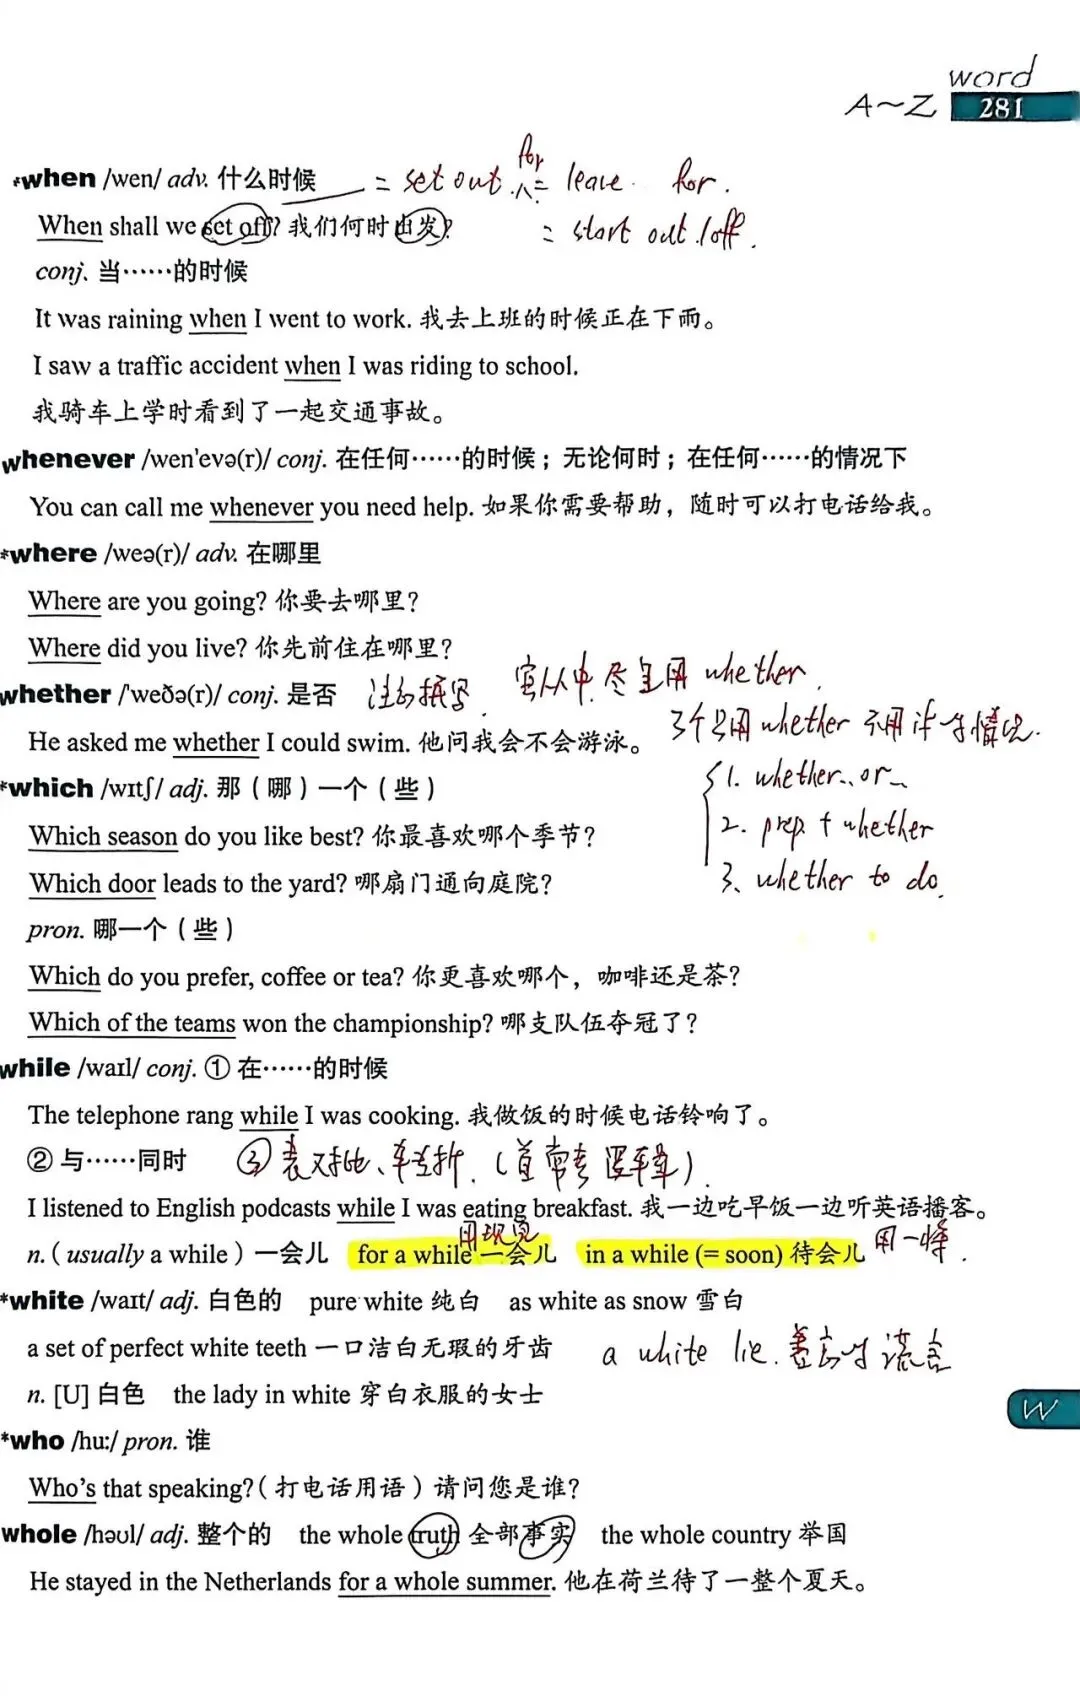 word
A~Z 281
*when /wen/ adv. 什么时候 = set out for = leave for.
When shall we set off? 我们何时出发? = start out/off.
conj. 当……的时候
It was raining when I went to work. 我去上班的时候正在下雨。
I saw a traffic accident when I was riding to school.
我骑车上学时看到了一起交通事故。
whenever /wen'evə(r)/ conj. 在任何……的时候；无论何时；在任何……的情况下
You can call me whenever you need help. 如果你需要帮助，随时可以打电话给我。
*where /weə(r)/ adv. 在哪里
Where are you going? 你要去哪里?
Where did you live? 你先前住在哪里?
whether /'weðə(r)/ conj. 是否 注幻拼写. 宾从中尽量用 whether.
He asked me whether I could swim. 他问我会不会游泳。 3个只用 whether 不用 if 的情况.
*which /wɪtʃ/ adj. 那（哪）一个（些） 1. whether.. or ..
Which season do you like best? 你最喜欢哪个季节? 2. prep. + whether
Which door leads to the yard? 哪扇门通向庭院? 3. whether to do.
pron. 哪一个（些）
Which do you prefer, coffee or tea? 你更喜欢哪个，咖啡还是茶?
Which of the teams won the championship? 哪支队伍夺冠了?
while /waɪl/ conj. ① 在……的时候
The telephone rang while I was cooking. 我做饭的时候电话铃响了。
② 与……同时 ③ 表对比、转折.
I listened to English podcasts while I was eating breakfast. 我一边吃早饭一边听英语播客。
n.（usually a while）一会儿 for a while 一会儿 用现完 in a while (= soon) 待会儿 用一将.
*white /waɪt/ adj. 白色的 pure white 纯白 as white as snow 雪白
a set of perfect white teeth 一口洁白无瑕的牙齿 a white lie. 善意的谎言
n. [U] 白色 the lady in white 穿白衣服的女士
W
*who /hu:/ pron. 谁
Who's that speaking?（打电话用语）请问您是谁?
whole /həʊl/ adj. 整个的 the whole truth 全部事实 the whole country 举国
He stayed in the Netherlands for a whole summer. 他在荷兰待了一整个夏天。